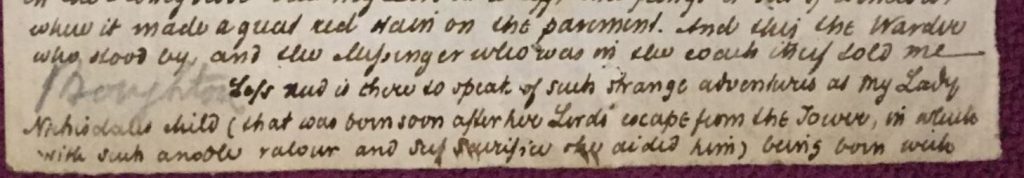 where it made a great red stain on the pavement. And this the Warder
who stood by, and the Messinger who was in the coach itself told me
Boughton
Less need is there to speak of such strange adventures as My Lady
Nithisdales child (that was born soon after her Lords' escape from the Tower, in which
with such a noble valour and self sacrifice she aided him) being born with